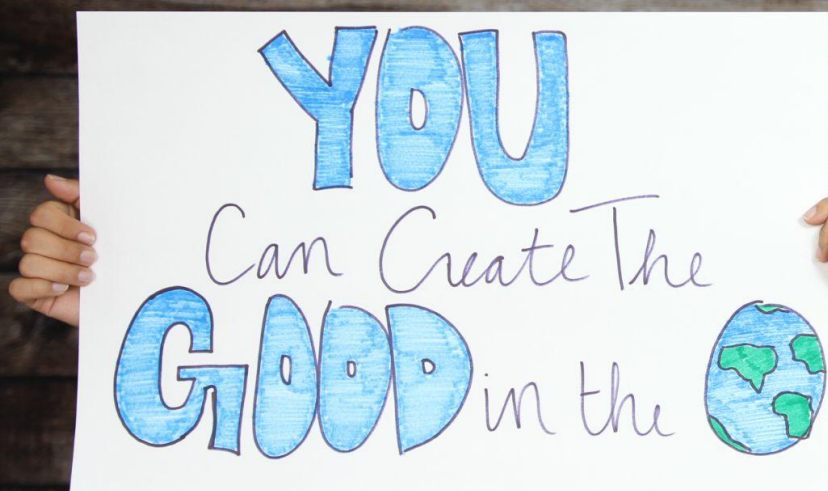 YOU
Can Create The
GOOD in the